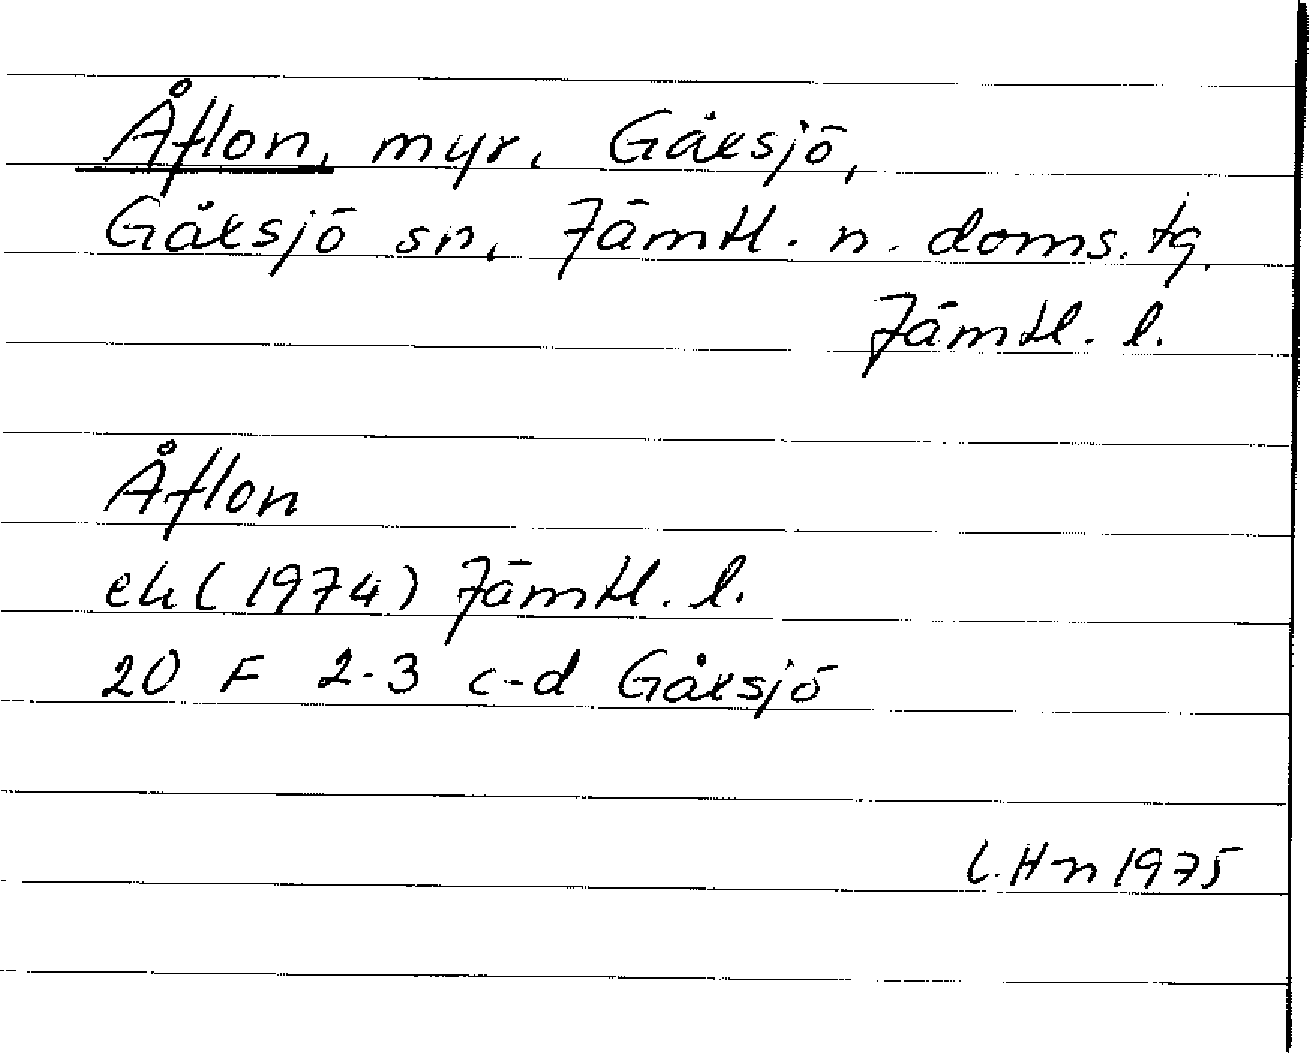 Åflon, myr. Gåxsjö,
Gåxsjö sn, Jämtl. n. doms. tg.
Jämtl. l.
Åflon
ek (1974) Jämtl. l.
20 F 2-3 c-d Gåxsjö
L. H-n 1975